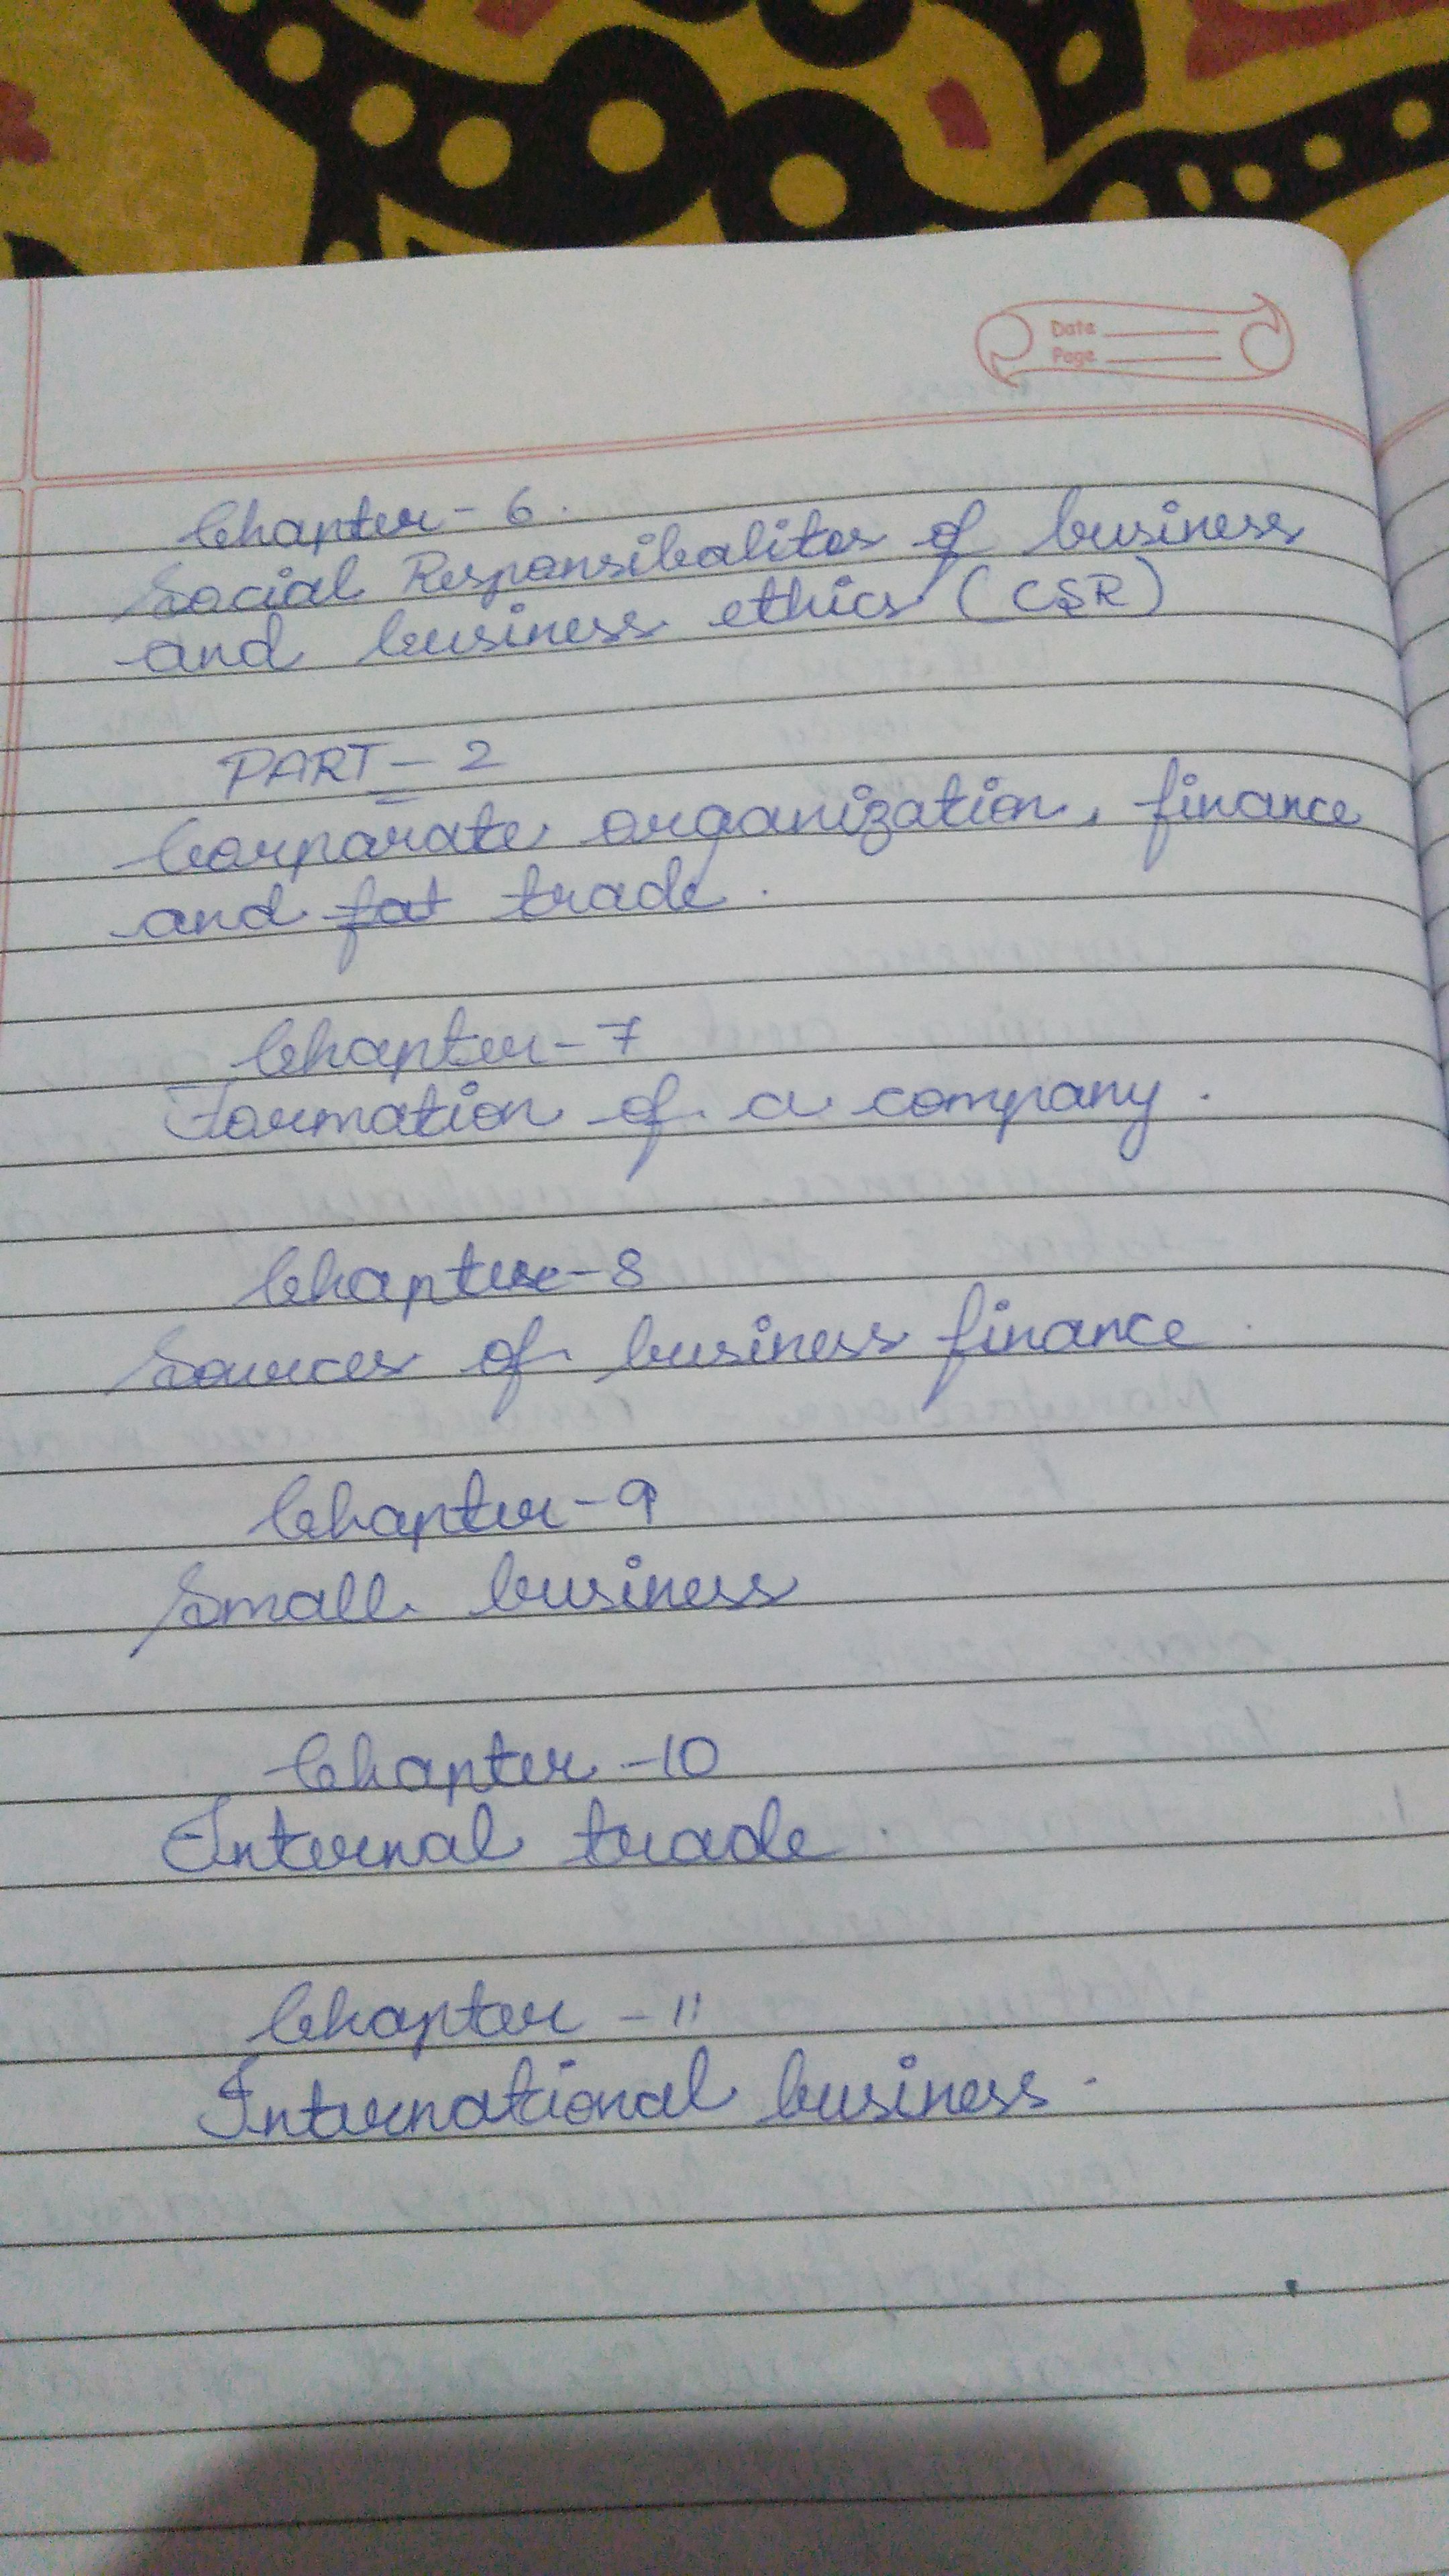 Date
Page
Chapter - 6.
Social Responsibalites of business
and business ethics (CSR)
PART - 2
Corporate organization, finance
and fat trade.
Chapter - 7
Formation of a company.
Chapter - 8
Sources of business finance.
Chapter - 9
Small business
Chapter - 10
Internal trade.
Chapter - 11
International business.